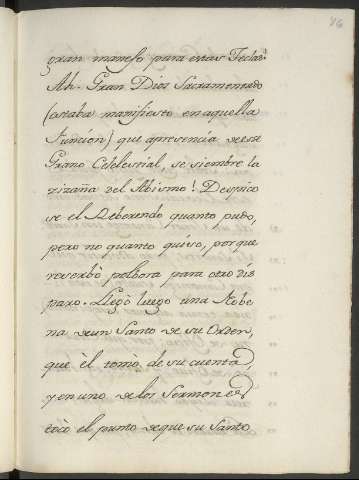 76
gran manejo para estas Teclas!
Ah. Gran Dios Sacramentado
(estaba manifiesto en aquella
funcion) que apresencia de este
Grano Celelestial, se siembre la
zizaña del Abismo! Despico
se el Reberendo quanto pudo,
pero no quanto quiso, porque
reserbò polbora para otro dis
paro. Llegò luego una Nobe
na de un Santo de su Orden,
que èl tomò de su cuenta,
y en uno de los Sermones
tocò el punto de que su Santo